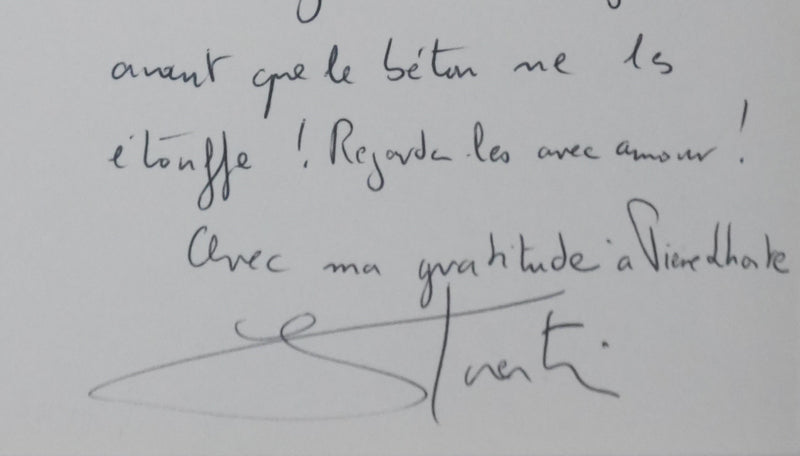 avant que le béton ne ls
étouffe ! Regarde les avec amour !
Avec ma gratitude à Pierre